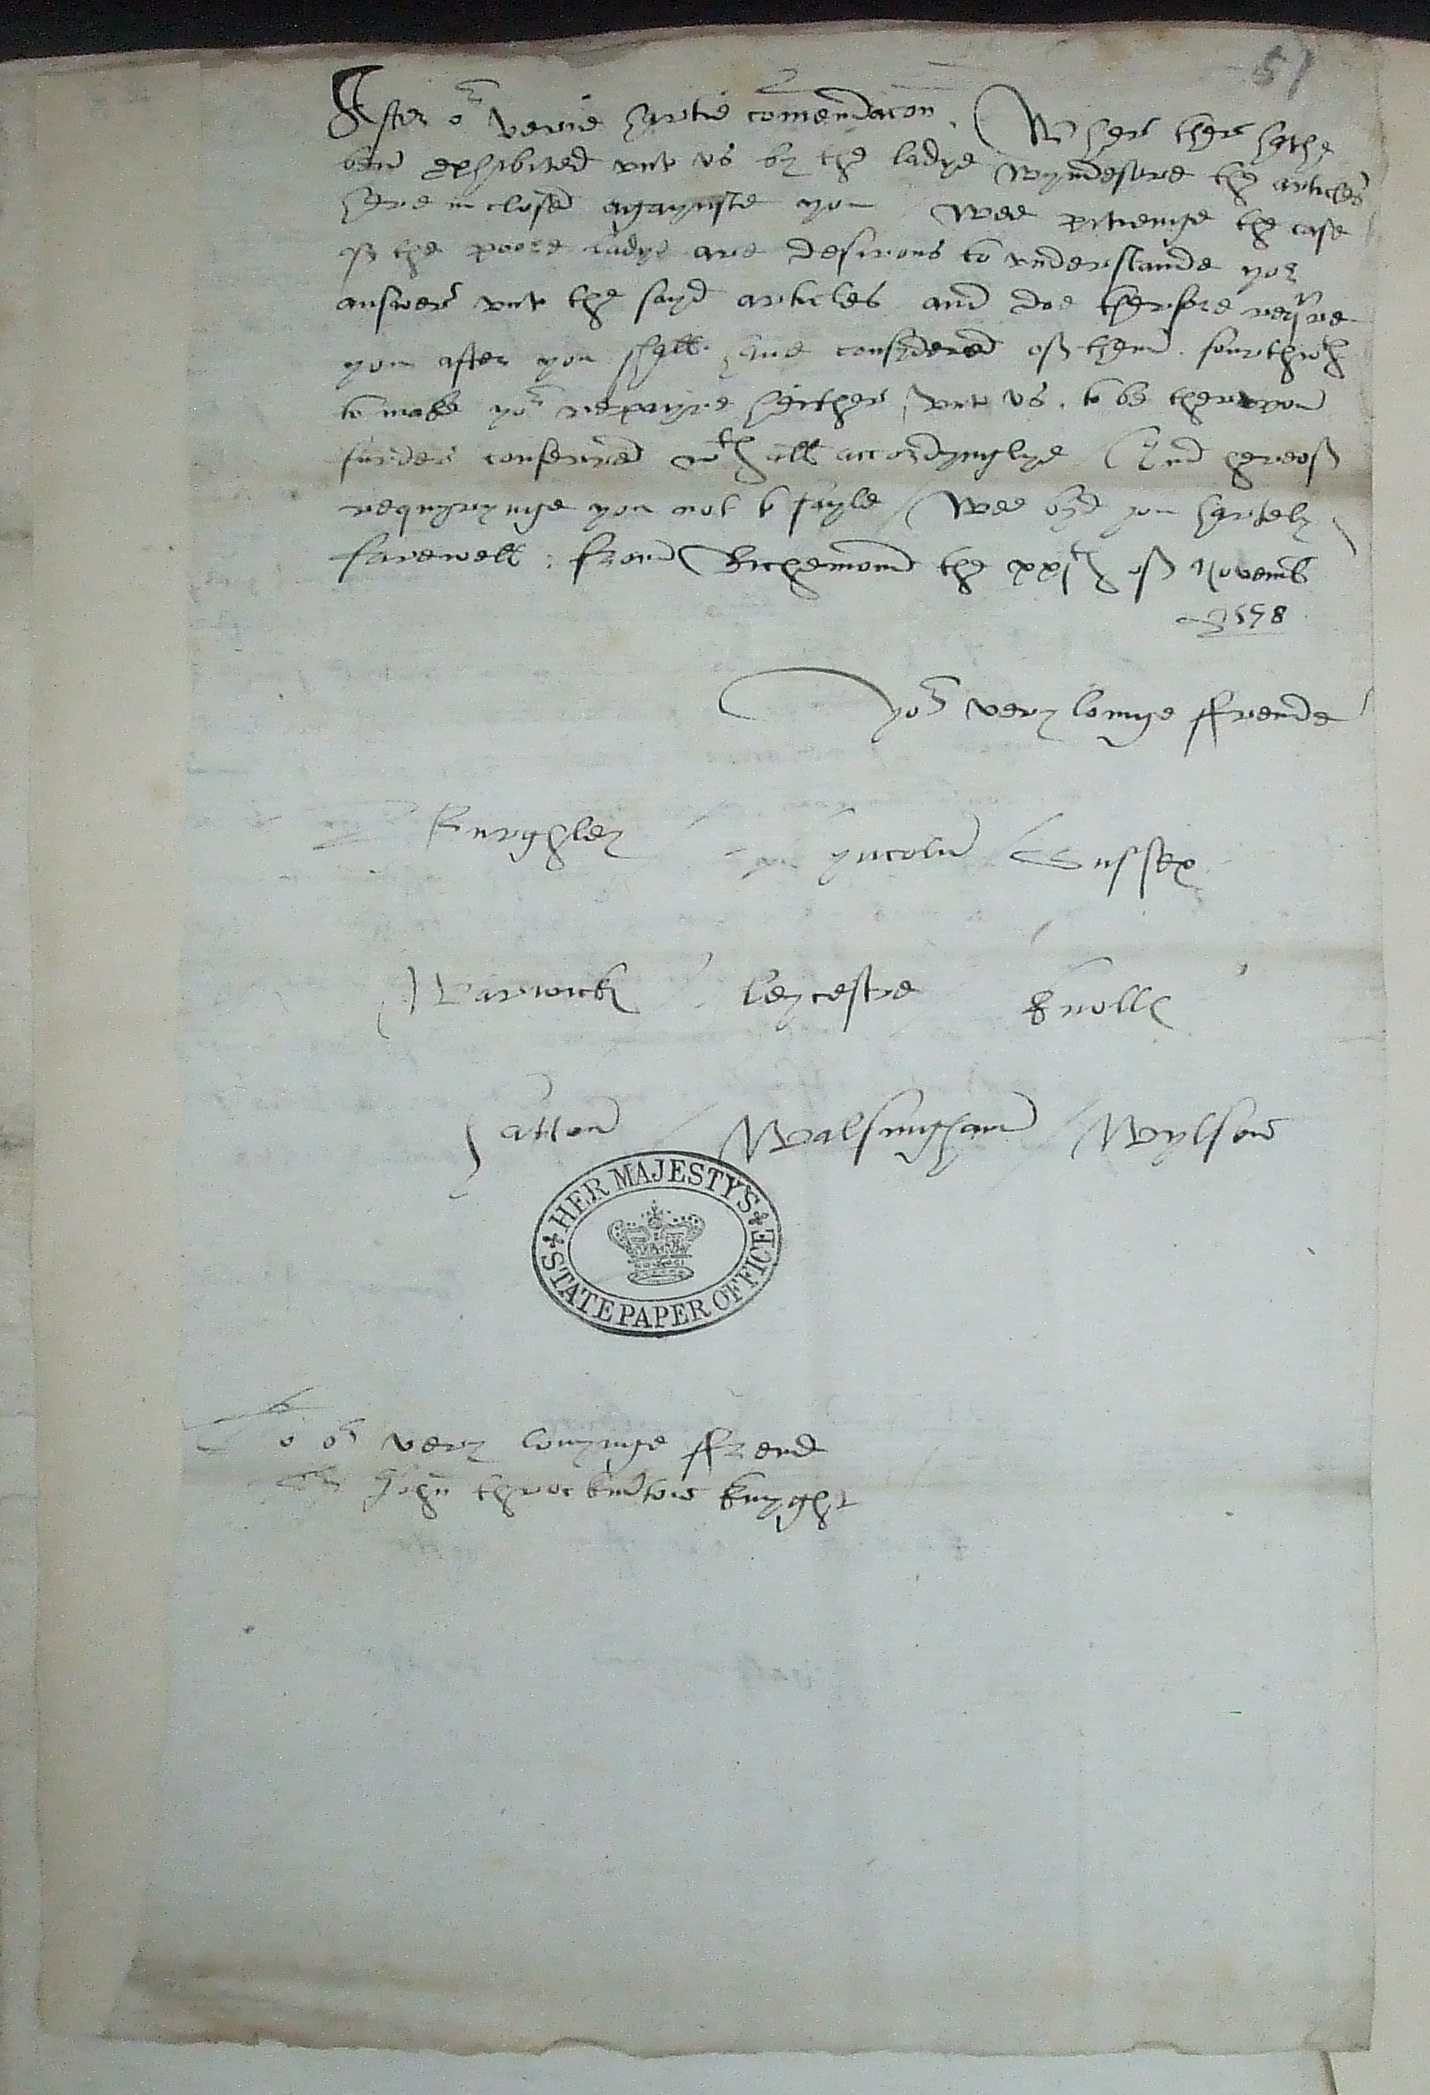 51
After or verie hartie comendacon. Wher ther hathe
ben exhibited unto us by the ladye Wyndesore the articles
here inclosed agaynste you Wee pitienge the case
of the poore ladye are desirous to understande yor
answer unto the sayd articles and doe therfore require
you after you shall have consydered of them fourthwth
to make yor repayre hether unto us to be theruppon
furder conferred wth all accordynglye And hereof
requyrynge you not to fayle Wee byd you hartely
farewell: from Richemond the xxjth of Novemb
1578
yor very lovinge ffrende
Burghley Lyncoln Sussex
Warwick Leycestre Knolls
Hatton Walsingham Wylson
HER MAJESTY'S
STATE PAPER OFFICE
To or very lovynge ffrend
Sr John throckmton knyght